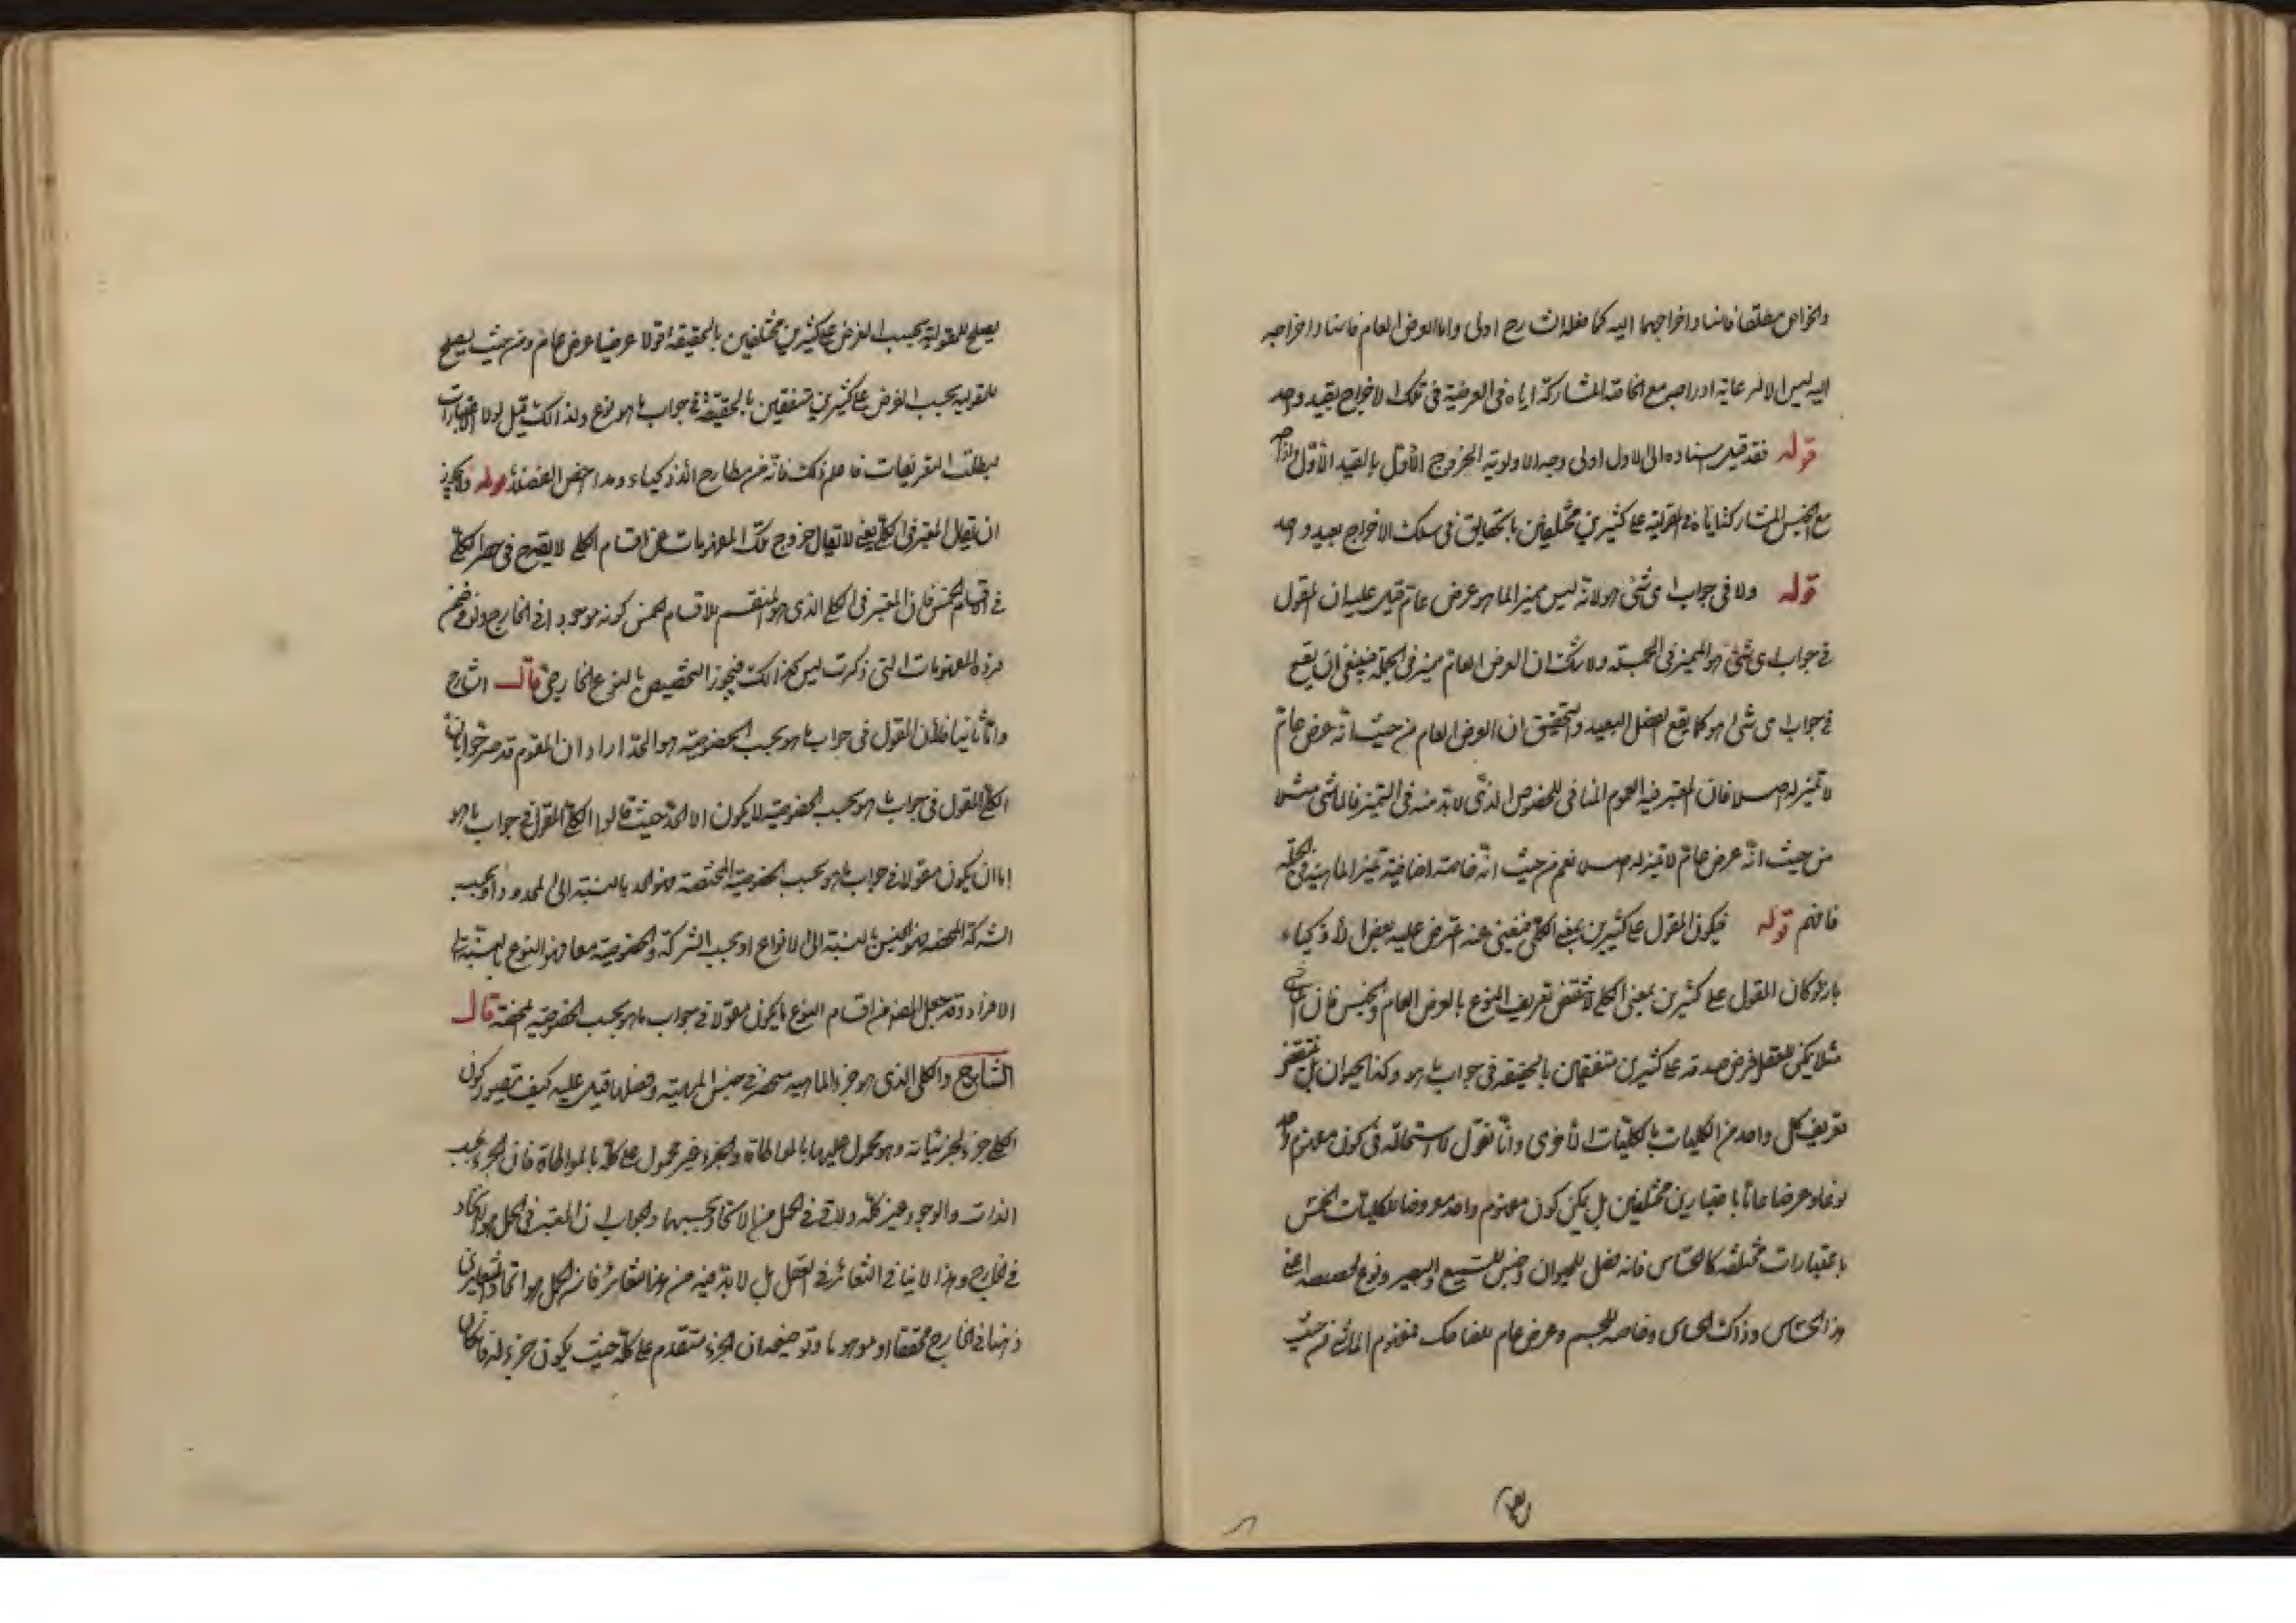 والخواص مطلقا فاسناد اخراجهما اليه كما فعله الش رح اولى واما العرض العام فاسناد اخراجه
اليه ليس الا لرعاية ادراجه مع الخاصة المشاركة اياه فى العرضية فى تلك الاخراج بقيد واحد
قوله فقد قيل اسناده الى الاول اولى وجه الاولوية الخروج الاول بالقيد الاول
مع الجنس المشارك اياه فى المقولية على كثيرين مختلفين بالحقايق فى سلك الاخراج بقيد واحد
قوله ولا فى جواب اى شئ هو لانه ليس مميزا لما هو عرض عام قيل عليه ان المقول
فى جواب اى شئ هو المميز فى الجملة ولا شك ان العرض العام مميز فى الجملة فينبغى ان يقع
فى جواب اى شئ هو كما يقع الفصل البعيد والتحقيق ان العرض العام من حيث انه عرض عام
لا تميز له اصلا فان المعتبر فيه العموم المنافى للخصوص الذى لا بد منه فى التميز فالماشى مثلا
من حيث انه عرض عام لا تميز له اصلا نعم من حيث انه خاصة اضافية تميز الماهية فى الجملة
فافهم قوله فيكون المقول على كثيرين بمعنى الكلى فيغنى عنه اعترض عليه بعض الاذكياء
بان لو كان المقول على كثيرين بمعنى الكلى لانتقض تعريف النوع بالعرض العام والجنس فان الماشى
مثلا يمكن للعقل فرض صدقه على كثيرين متفقين بالحقيقة فى جواب ما هو وكذا الحيوان بل ينتقض
تعريف كل واحد من الكليات بالكليات الاخرى وانا نقول لا استحالة فى كون مفهوم واحد
نوعا وعرضا عاما باعتبارين مختلفين بل يمكن كون مفهوم واحد معروضا للكليات الخمس
باعتبارات مختلفة كالحساس فانه فصل للحيوان وجنس للسميع والبصير ونوع لحصصه اعنى
هذا الحساس وذاك الحساس وخاصة للجسم وعرض عام للضاحك فمفهوم الماشى من حيث
يصلح للمقولية بحسب الفرض على كثيرين مختلفين بالحقيقة قولا عرضيا عرض عام ومن حيث يصلح
للمقولية بحسب الفرض على كثيرين متفقين بالحقيقة فى جواب ما هو نوع ولذلك قيل لولا الاعتبارات
لبطلت التعريفات فاعلم ذلك فانه من مطارح الاذكياء ومداحض الفضلاء قوله ولا يجوز
ان يقال المعتبر فى الكلى يعنى لا يقال خروج تلك المفهومات عن اقسام الكلى لا يقدح فى حصر الكلى
فى اقسام الخمس فان المعتبر فى الكلى الذى هو المنقسم للاقسام الخمس كونه موجودا فى الخارج ولو فى ضمن
فرد والمفهومات التى ذكرت ليس كذلك فيجوز التخصيص بالنوع الخارجى قال الشارح
واما ثانيا فلان المقول فى جواب ما هو بحسب الخصوصية هو الحد اراد ان القوم قد صرحوا بان
الكلى المقول فى جواب ما هو بحسب الخصوصية لا يكون الا الحد حيث قالوا الكلى المقول فى جواب ما هو
اما ان يكون مقولا فى جواب ما هو بحسب الخصوصية المختصة فهو الحد بالنسبة الى المحدود او بحسب
الشركة المحضة فهو الجنس بالنسبة الى الانواع او بحسب الشركة والخصوصية معا فهو النوع بالنسبة الى
الافراد وقد جعل المص من اقسام النوع ما يكون مقولا فى جواب ما هو بحسب الخصوصية المحضة قال
الشارح والكلى الذى هو جزء الماهية منحصر فى جنس الماهية وفصلها قيل عليه كيف يتصور كون
الكلى جزء لجزئياته وهو محمول عليها بالمواطاة والجزء غير محمول على كله بالمواطاة فان الجزء بحسب
الذات والوجود غير كله ولابد فى الحمل من الاتحاد بحسبهما والجواب ان المعتبر فى الحمل هو الاتحاد
فى الخارج وهذا لا ينافى التغائر فى العقل بل لا بد فيه من هذا التغائر فان الحمل هو اتحاد المتغايرين
ذهنا فى الخارج محققا او موهوما وتوضيحه ان الجزء متقدم على كله حيث يكون جزء له فان كان